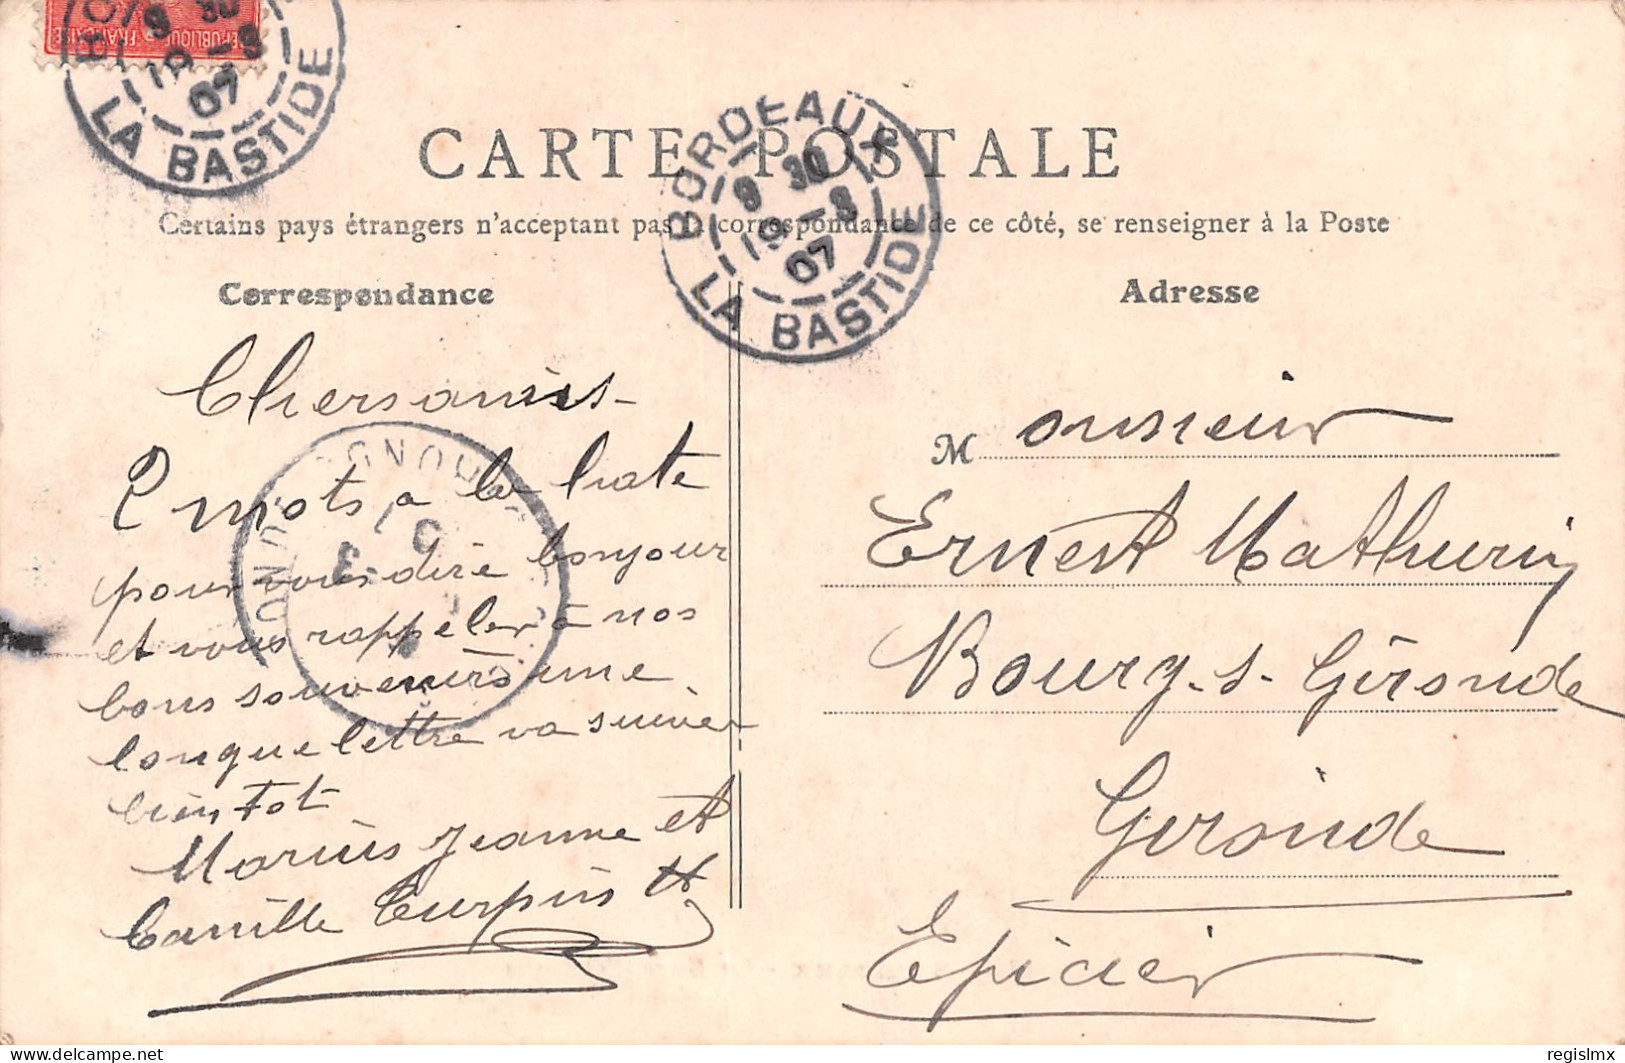 REPUBLIQUE FRANÇAISE
9 30
19 - 8
07
LA BASTIDE
BORDEAUX
9 30
19 - 8
07
LA BASTIDE
CARTE POSTALE
Certains pays étrangers n'acceptant pas la correspondance de ce côté, se renseigner à la Poste
Correspondance
Chers amis-
2 mots a la hate
pour vous dire bonjour
et vous rappeler à nos
bons souvenirs une
longue lettre va suivre
bientot
Marius Jeanne et
Camille Turpin
Adresse
Monsieur
Ernest Mathurin
Bourg-s-Gironde
Gironde
Epicier
delcampe.net
regislmx